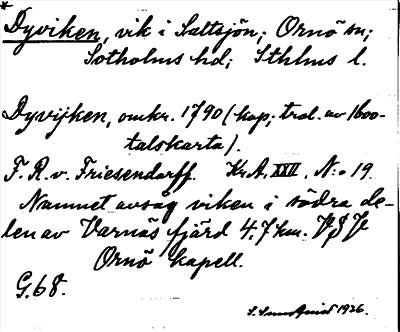 Dyviken, vik i Saltsjön; Ornö sn;
Sotholms hd; Sthlms l.
Dyvijken, omkr. 1790 (kop; trol. av 1600-
talskarta).
F. R. v. Friesendorff. Kr.A. XXII, N:o 19.
Namnet avsåg viken i södra de-
len av Varnäs fjärd 4.7 km. VSV
Ornö kapell.
G.68.
1936.